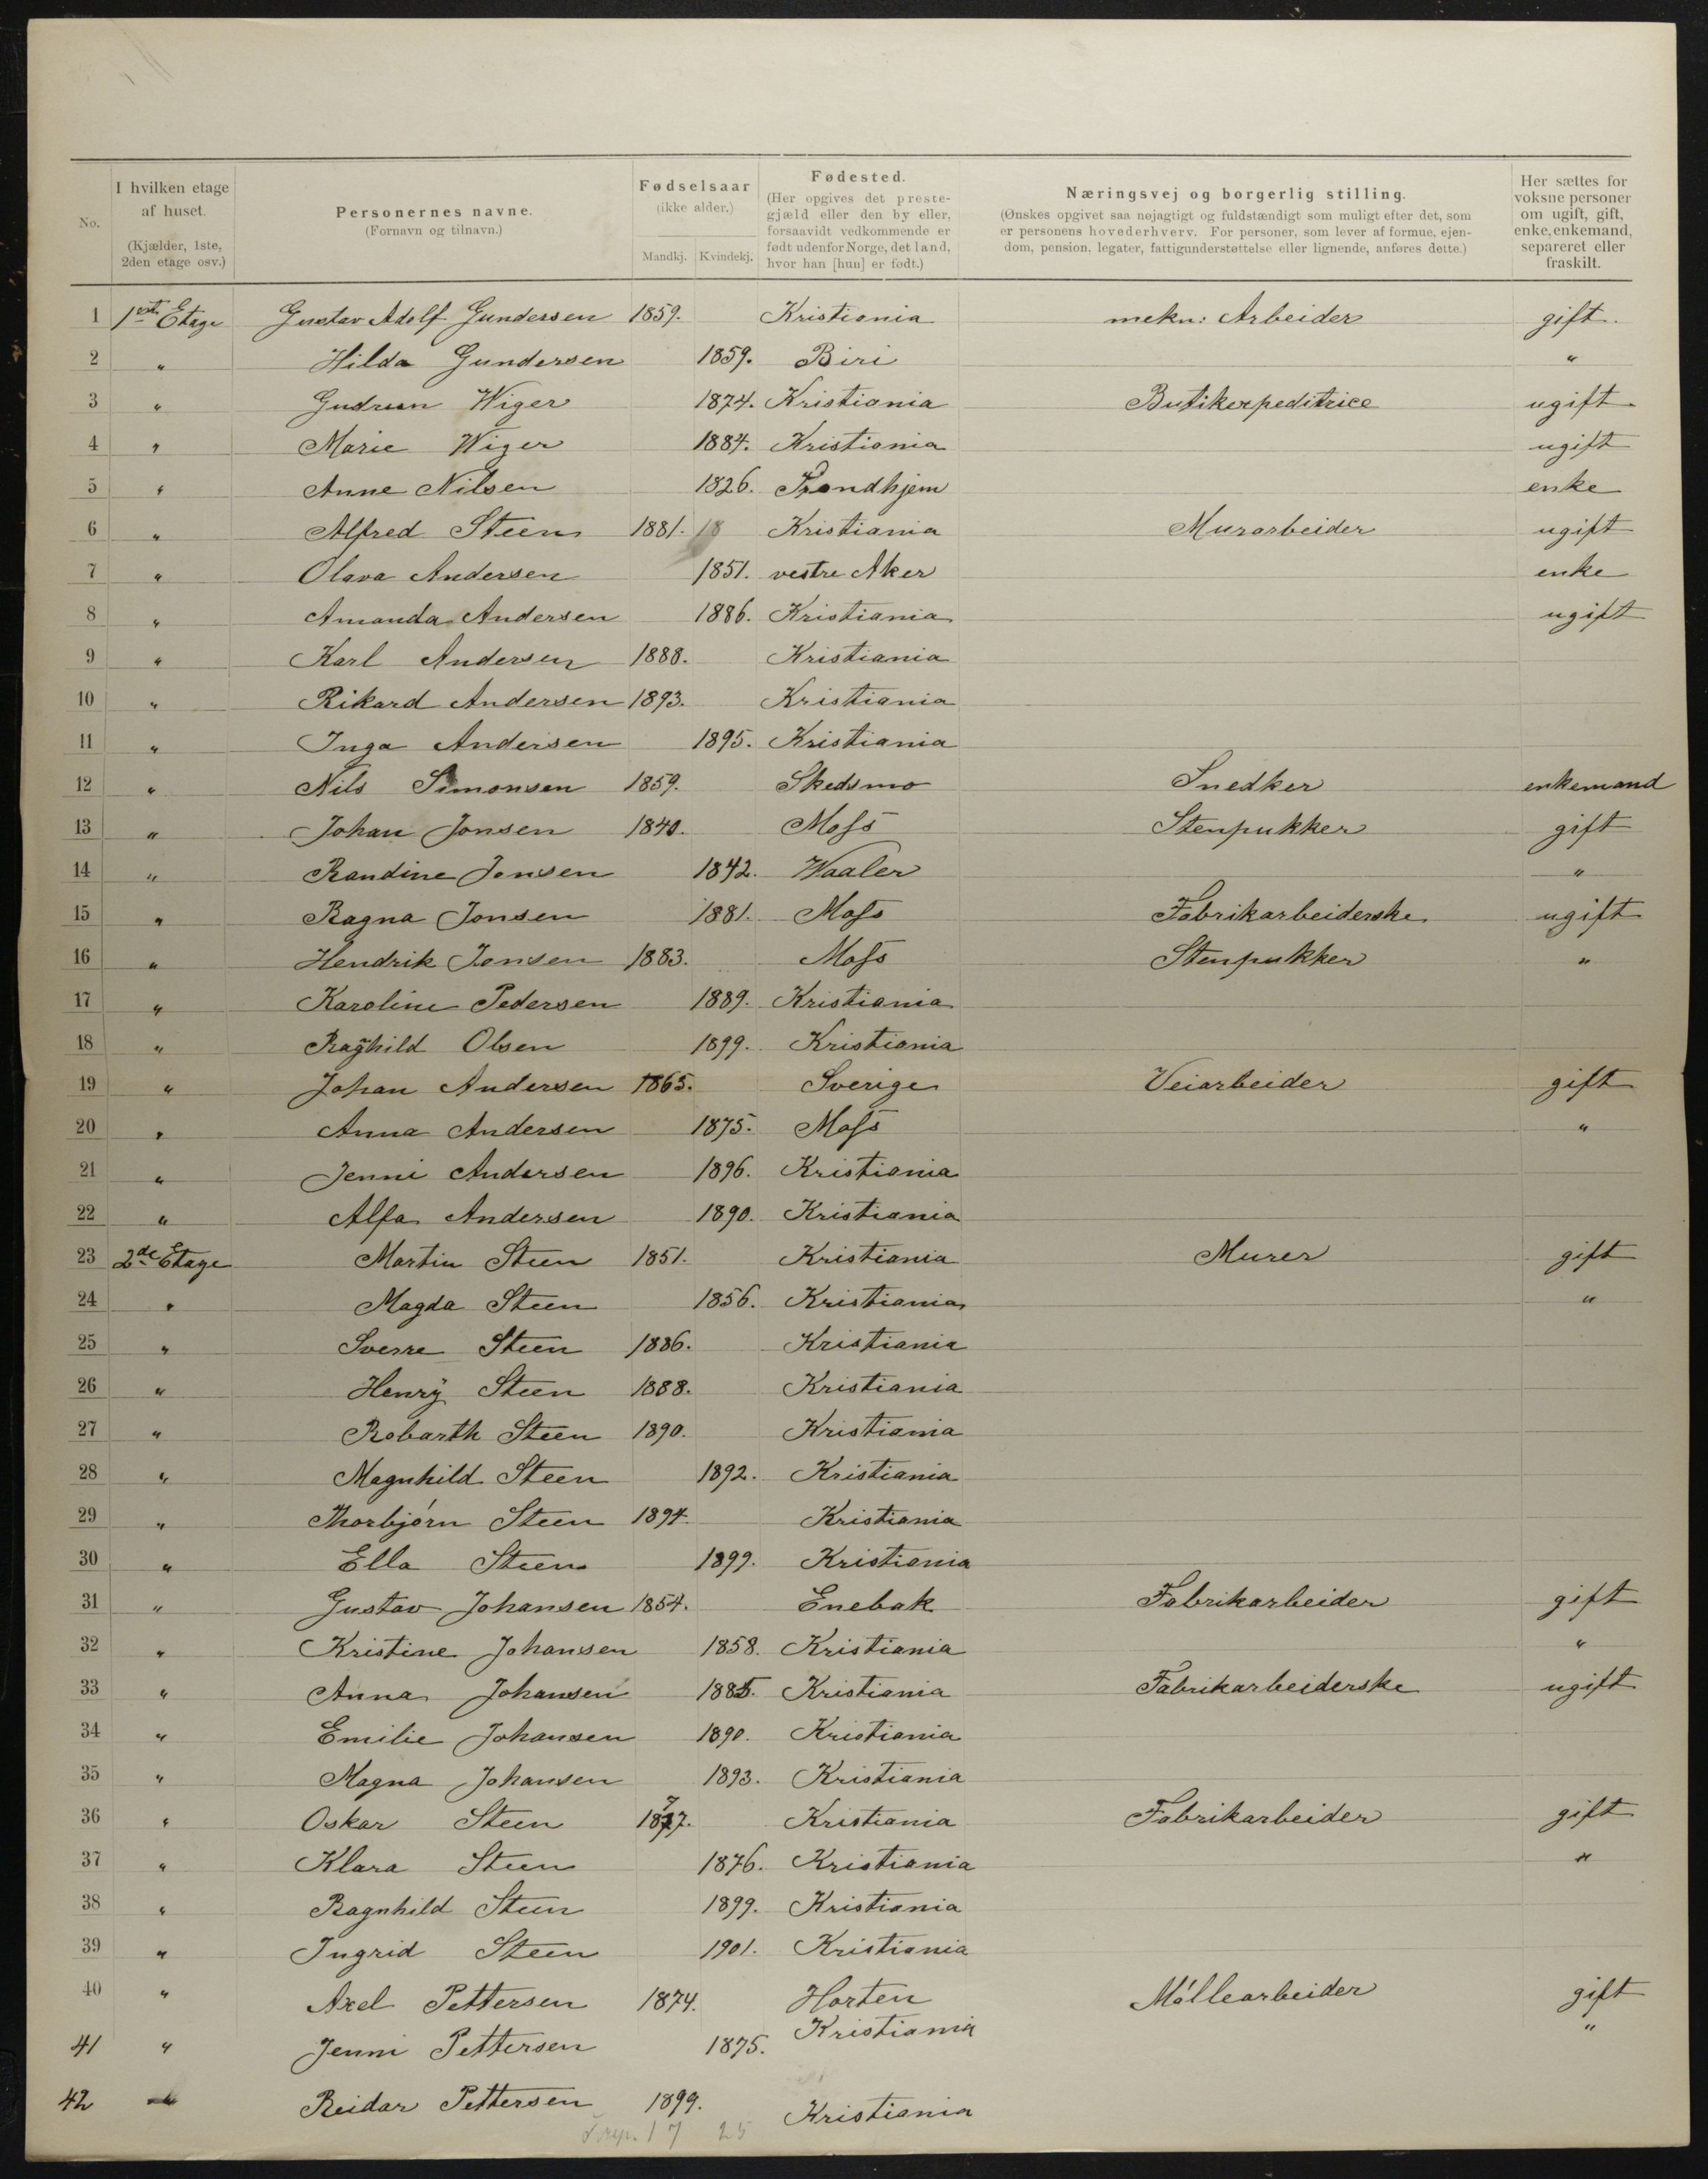 No.
I hvilken etage af huset.
(Kjælder, 1ste, 2den etage osv.)
Personernes navne.
(Fornavn og tilnavn.)
Fødselsaar
(ikke alder.)
Mandkj. Kvindekj.
Fødested.
(Her opgives det prestegjæld eller den by eller, forsaavidt vedkommende er født udenfor Norge, det land, hvor han [hun] er født.)
Næringsvej og borgerlig stilling.
(Ønskes opgivet saa nøjagtigt og fuldstændigt som muligt efter det, som er personens hovederhverv. For personer, som lever af formue, ejendom, pension, legater, fattigunderstøttelse eller lignende, anføres dette.)
Her sættes for voksne personer om ugift, gift, enke, enkemand, separeret eller fraskilt.
1 1ste Etage Gustav Adolf Gundersen 1859. Kristiania mekn: Arbeider gift.
2 " Hilda Gundersen 1859. Biri "
3 " Gudrun Wiger 1874. Kristiania Butikexpeditrice ugift
4 " Marie Wiger 1884. Kristiania ugift
5 " Anne Nilsen 1826. Trondhjem enke
6 " Alfred Steen 1881. 18 Kristiania Murarbeider ugift
7 " Olava Andersen 1851. vestre Aker enke
8 " Amanda Andersen 1886. Kristiania ugift
9 " Karl Andersen 1888. Kristiania
10 " Rikard Andersen 1893. Kristiania
11 " Inga Andersen 1895. Kristiania
12 " Nils Simonsen 1859. Skedsmo Snedker enkemand
13 " Johan Jonsen 1840. Moss Stenpukker gift
14 " Randine Jonsen 1842. Waaler "
15 " Ragna Jonsen 1881. Moss Fabrikarbeiderske ugift
16 " Hendrik Jonsen 1883. Moss Stenpukker "
17 " Karoline Pedersen 1889. Kristiania
18 " Raghild Olsen 1899. Kristiania
19 " Johan Andersen 1865. Sverige Veiarbeider gift
20 " Anna Andersen 1875. Moss "
21 " Jenni Andersen 1896. Kristiania
22 " Alfa Andersen 1890. Kristiania
23 2de Etage Martin Steen 1851. Kristiania Murer gift
24 " Magda Steen 1856. Kristiania "
25 " Sverre Steen 1886. Kristiania
26 " Henry Steen 1888. Kristiania
27 " Robarth Steen 1890. Kristiania
28 " Magnhild Steen 1892. Kristiania
29 " Thorbjórn Steen 1894. Kristiania
30 " Ella Steen 1899. Kristiania
31 " Gustav Johansen 1854. Enebak Fabrikarbeider gift
32 " Kristine Johansen 1858. Kristiania "
33 " Anna Johansen 1885. Kristiania Fabrikarbeiderske ugift
34 " Emilie Johansen 1890. Kristiania
35 " Magna Johansen 1893. Kristiania
36 " Oskar Steen 1877. Kristiania Fabrikarbeider gift
37 " Klara Steen 1876. Kristiania "
38 " Ragnhild Steen 1899. Kristiania
39 " Ingrid Steen 1901. Kristiania
40 " Axel Pettersen 1874. Horten Móllearbeider gift
41 " Jenni Pettersen 1875. Kristiania "
42 " Reidar Pettersen 1899. Kristiania
17 25